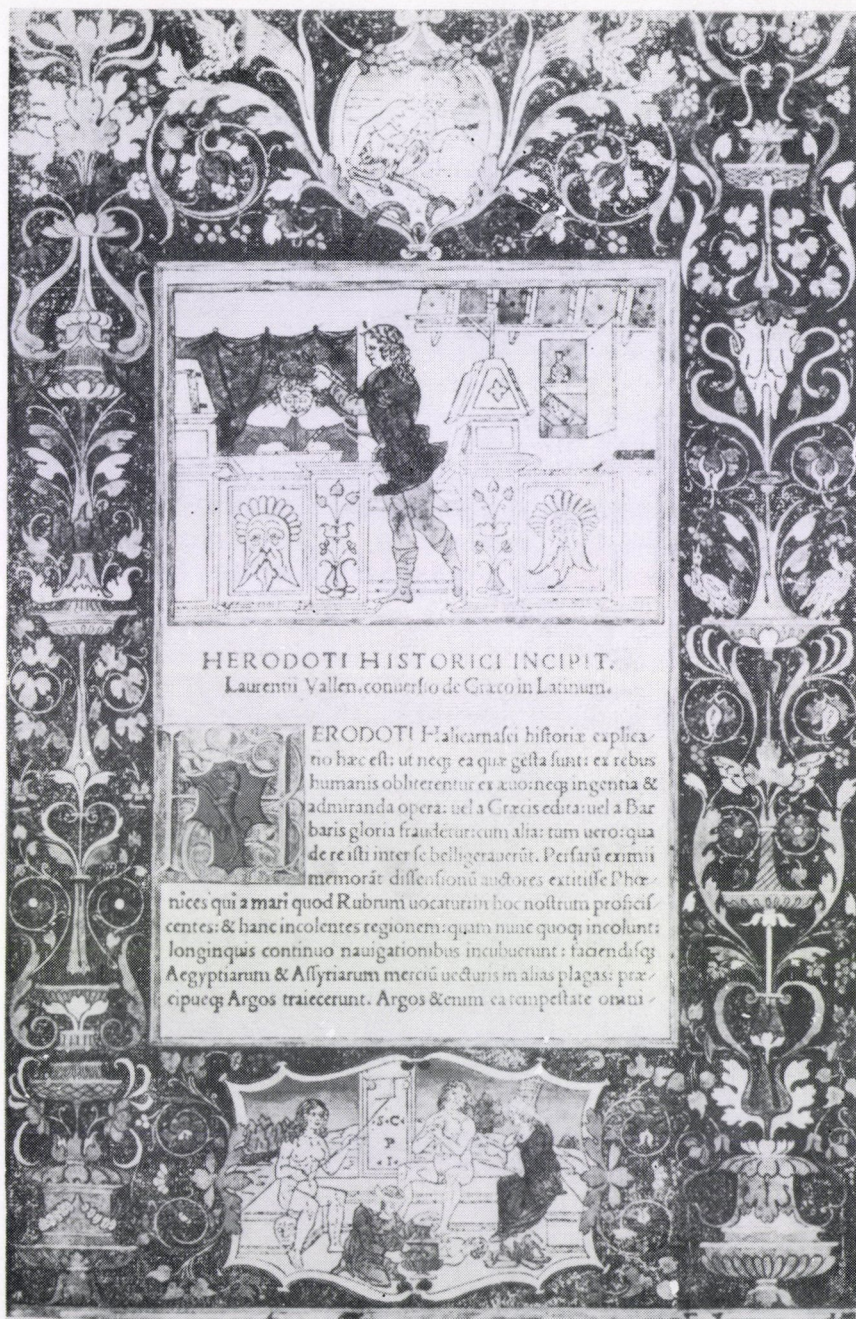 HERODOTI HISTORICI INCIPIT.
Laurentii Vallen. conuersio de Græco in Latinum.
HERODOTI Halicarnasei historiæ explica-
tio hæc est: ut neqꝫ ea quæ gesta sunt: ex rebus
humanis obliterentur ex æuo: neqꝫ ingentia &
admiranda opera: uel a Græcis edita: uel a Bar
baris gloria fraudētur: cum alia: tum uero: qua
de re isti inter se belligerauerūt. Persarū eximii
memorāt dissensionū auctores extitisse Phœ-
nices qui a mari quod Rubrum uocatur: in hoc nostrum proficis-
centes: & hanc incolentes regionem: quam nunc quoqꝫ incolunt:
longinquis continuo nauigationibus incubuerunt: faciendisqꝫ
Aegyptiarum & Assyriarum merciū uecturis in alias plagas: præ-
cipueqꝫ Argos traiecerunt. Argos &enim ea tempestate omni-
·S·C·
P
·I·